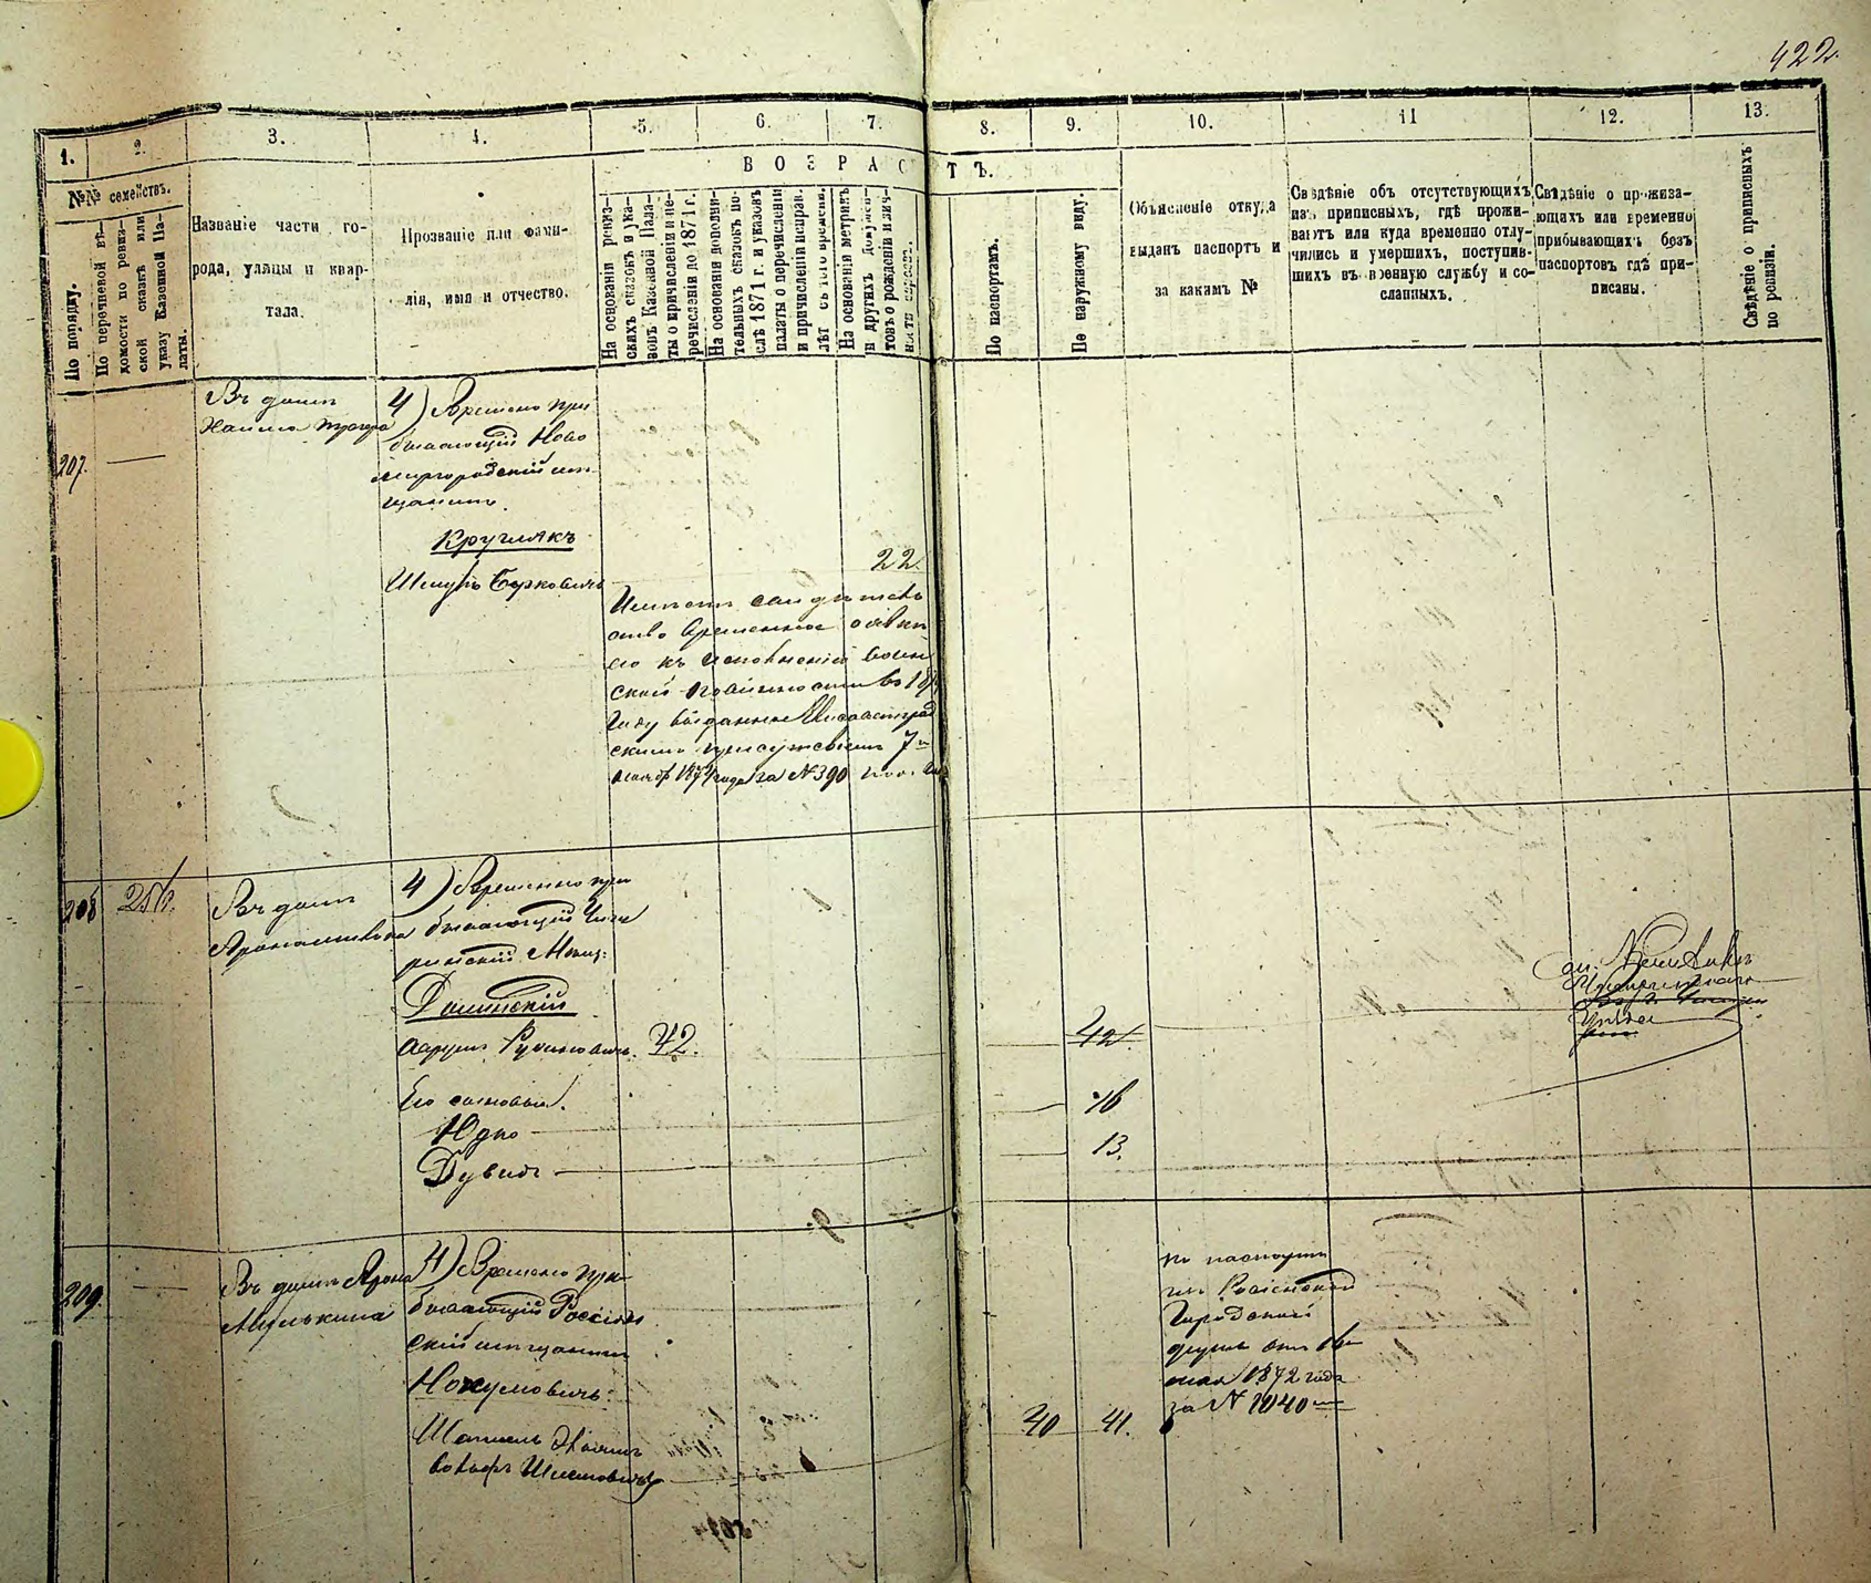 422.
1.
2.
3.
4.
5.
6.
7.
8.
9.
10.
11
12.
13.
№№ семействъ.
ВОЗРАСТЪ.
По порядку.
По перечневой вѣ-
домости по ревиз-
ской сказкѣ или
указу Казенной Па-
латы.
Названіе части го-
рода, улицы и квар-
тала.
Прозваніе или фами-
лія, имя и отчество.
На основаніи ревиз-
скихъ сказокъ и ука-
зовъ Казенной Пала-
ты о причисленіи и пе-
речисленіи до 1871 г.
На основаніи дополни-
тельныхъ сказокъ по-
слѣ 1871 г. и указовъ
палаты о перечисленіи
и причисленіи исправ.
лѣт съ того времени.
На основаніи метрикъ
и другихъ докумен-
товъ о рожденіи и лич-
По паспортамъ.
По наружному виду.
Объясненіе откуда
выданъ паспортъ и
за какимъ №
Свѣдѣніе объ отсутствующихъ
изъ приписныхъ, гдѣ прожи-
ваютъ или куда временно отлу-
чились и умершихъ, поступив-
шихъ въ военную службу и со-
сланныхъ.
Свѣдѣніе о прожива-
ющихъ или временно
прибывающихъ безъ
паспортовъ гдѣ при-
писаны.
Свѣдѣніе о приписныхъ
по ревизіи.
207.
Въ домѣ
Хаима
4) Времено при
бывающій Ново
миргородскій мѣ-
щанинъ
Круглякъ
Шмуль Берковичъ
22.
Имѣетъ свидѣтель
ство временное о явкѣ
его къ исполненію воин
ской повинности въ 18
году выданное Елисаветград
скимъ присутствіемъ 7го
года за №390
208
Въ домѣ
4) Временно при
бывающій Чиги
ринскій Мѣщ:
Долинскій
Аврумъ Рувиновичъ. 42.
42.
Его сыновья.
Юдко
16
Дувидъ
13.
209.
Въ домѣ Арона
Милькина
4) Времено при
бывающій Россіен
скій мѣщанинъ
Нохумовичъ:
Шмуель Хаимъ
Вольфъ Шлемовичъ
40
41.
По паспорту
изъ Россіенской
Городской
думы отъ 16
мая 1872 года
за № 1040